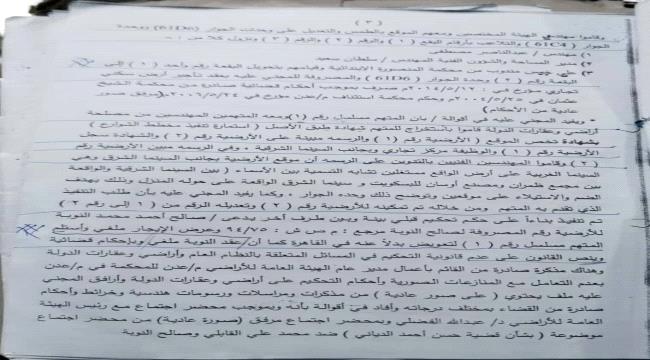 ( ٣ )
وقاموا مهندسي الهيئة المختصين ومعهم الموقع بالطمس والتعديل على وحدات الجوار (61D6) ووحدة
الجوار (61C4) والتلاعب بأرقام البقع ( ١ ) والرقم ( ٢ ) والرقم ( ٣ ) ونزول كلاً من :-
١) مهندس / عبدالناصر مصطفى
٢) مدير المساحة والشؤون الفنية المهندس / سلطان سعيد
٣) مندوب من محكمة المنصورة الابتدائية وقيامهم بتحويل البقعة رقم واحد ( ١ ) إلى
البقعة رقم ( ٢ ) وحدة الجوار (61D6) والمصروفة للمجني عليه بعقد تأجير أرض سكني
تجاري مؤرخ في ٢٠١٤/٥/١٢م صرف بموجب أحكام قضائية صادرة من محكمة الشيخ
عثمان في ٢٠٠٤/٥/٢٥م وحكم محكمة استئناف م/عدن مؤرخ في ٢٠١٦/٥/٢٤م (مرفق صور
عادية من الأحكام)
ويفيد المجني عليه في أقواله / بأن المتهم مسلسل رقم (١) ومعه المتهمين المهندسين من مصلحة
أراضي وعقارات الدولة قاموا باستخراج للمتهم شهادة طبق الأصل ( استمارة تنفيذ مخطط الشوارع )
بشهادة تخص الموقع ( الأرضية رقم (١) والرسمه مبينة على الأرضية رقم (٢) والشهادة سجل
الأرضية رقم (١) والوظيفة مركز تجاري وبجانب السينما الشرقية ، وفي الرسمه مبين الأرضية رقم
(٢) وقاموا المهندسين الفنيين بالتنوين على الرسمه أن موقع الأرضية بجانب السينما الشرق وهي
السينما الغربية على أرض الواقع مستغلين تشابه التسمية بين الأسماء ( بين السينما الشرقية والواقعة
بين مجمع ظمران ومصنع أوسان للبسكويت و سينما الشرق الواقعة على حوله المنزل وذلك بهدف
الضم والاستيلاء على موقعين وتوضح ذلك وحده الجوار ، وكما يفيد المجني عليه بأن طلب التنفيذ
الذي تقدم به المتهم ومن خلاله تم تمكينه للأرضية رقم (٢) وتعديله الرقم من (١) إلى رقم (٢)
تم تنفيذ بناءاً على حكم تحكيم قبلي بينة وبين طرف آخر يدعى / صالح أحمد محمد النوبة
للأرضية رقم المصروفة لصالح النوبة مرجع : م ص ش : ٩٤/٧٥ وعرض الإيجار ملغي وأستلم
المتهم مسلسل رقم (١) لتعويض بدلاً عنه في القاهرة كما أن عقد النوبة ملغي وبأحكام قضائية
وينص القانون على عدم قانونية التحكيم في المسائل المتعلقة بالنظام العام وأراضي وعقارات الدولة
وهناك مذكرة صادرة من القائم بأعمال مدير عام الهيئة العامة للأراضي م/عدن للمحكمة في م/عدن
بعدم التعامل مع المنازعات الصورية وأحكام التحكيم على أراضي وعقارات الدولة وأرافق المجني
عليه ملف يحتوي ( على صور عادية ) من مذكرات ومراسلات ورسومات هندسية وخرائط وأحكام
صادرة من القضاء بمختلف درجاته وأفاد في أقواله بأنه وبموجب محضر اجتماع مع رئيس الهيئة
العامة للأراضي د/ عبدالله الفضلي وبمحضر اجتماع موفق (صورة عادية) من محضر اجتماع
موضوعة ( بشأن قضية حسن أحمد الدياني ) ضد محمد علي القابلي وصالح النوبة.